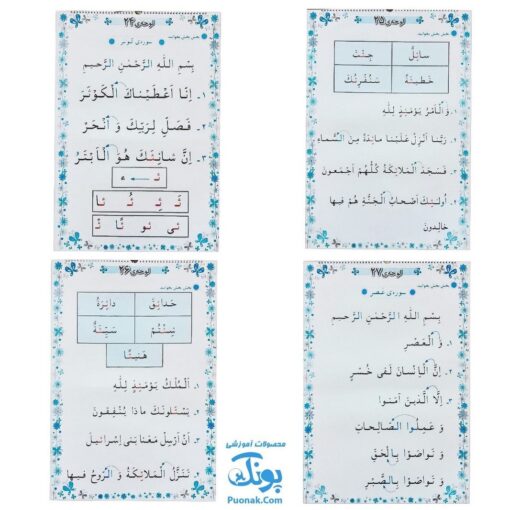 لوحه‌ی ۲۴
بخش بخش بخوانید.
سوره‌ی کوثر
بِسْمِ اللهِ الرَّحْمٰنِ الرَّحیمِ
۱. اِنّا اَعْطَیْناکَ الْکَوْثَرَ
۲. فَصَلِّ لِرَبِّکَ وَ انْحَرْ
۳. اِنَّ شانِئَکَ هُوَ الْاَبْتَرُ
ئـ ← ء
ئَـ ئِـ ئُـ ئا
ئی ئو ئًا ئْـ
لوحه‌ی ۲۵
بخش بخش بخوانید.
سائِلُ جِئْتَ
خَطیئَةُ سَنُقْرِئُکَ
۱. وَ الْاَمْرُ یَوْمَئِذٍ لِلّٰهِ
۲. رَبَّنا اَنْزِلْ عَلَیْنا مائِدَةً مِنَ السَّماءِ
۳. فَسَجَدَ الْمَلائِکَةُ کُلُّهُمْ اَجْمَعونَ
۴. اُولٰئِکَ اَصْحابُ الْجَنَّةِ هُمْ فیها
خالِدونَ
لوحه‌ی ۲۶
بخش بخش بخوانید.
حَدائِقَ دائِرَةُ
شِئْتُمْ سَیِّئَةُ
هَنیئًا
۱. اَلْمُلْکُ یَوْمَئِذٍ لِلّٰهِ
۲. یَسْئَلونَکَ ماذا یُنْفِقونَ
۳. اَنْ اَرْسِلْ مَعَنا بَنی اِسْرائیلَ
۴. تَنَزَّلُ الْمَلائِکَةُ وَ الرّوحُ فیها
لوحه‌ی ۲۷
بخش بخش بخوانید.
سوره‌ی عصر
بِسْمِ اللهِ الرَّحْمٰنِ الرَّحیمِ
وَ الْعَصْرِ
اِنَّ الْاِنْسانَ لَفی خُسْرٍ
اِلَّا الَّذینَ آمَنوا
وَ عَمِلُوا الصّالِحاتِ
وَ تَواصَوْا بِالْحَقِّ
وَ تَواصَوْا بِالصَّبْرِ
محصولات آموزشی
پونک
Puonak.Com